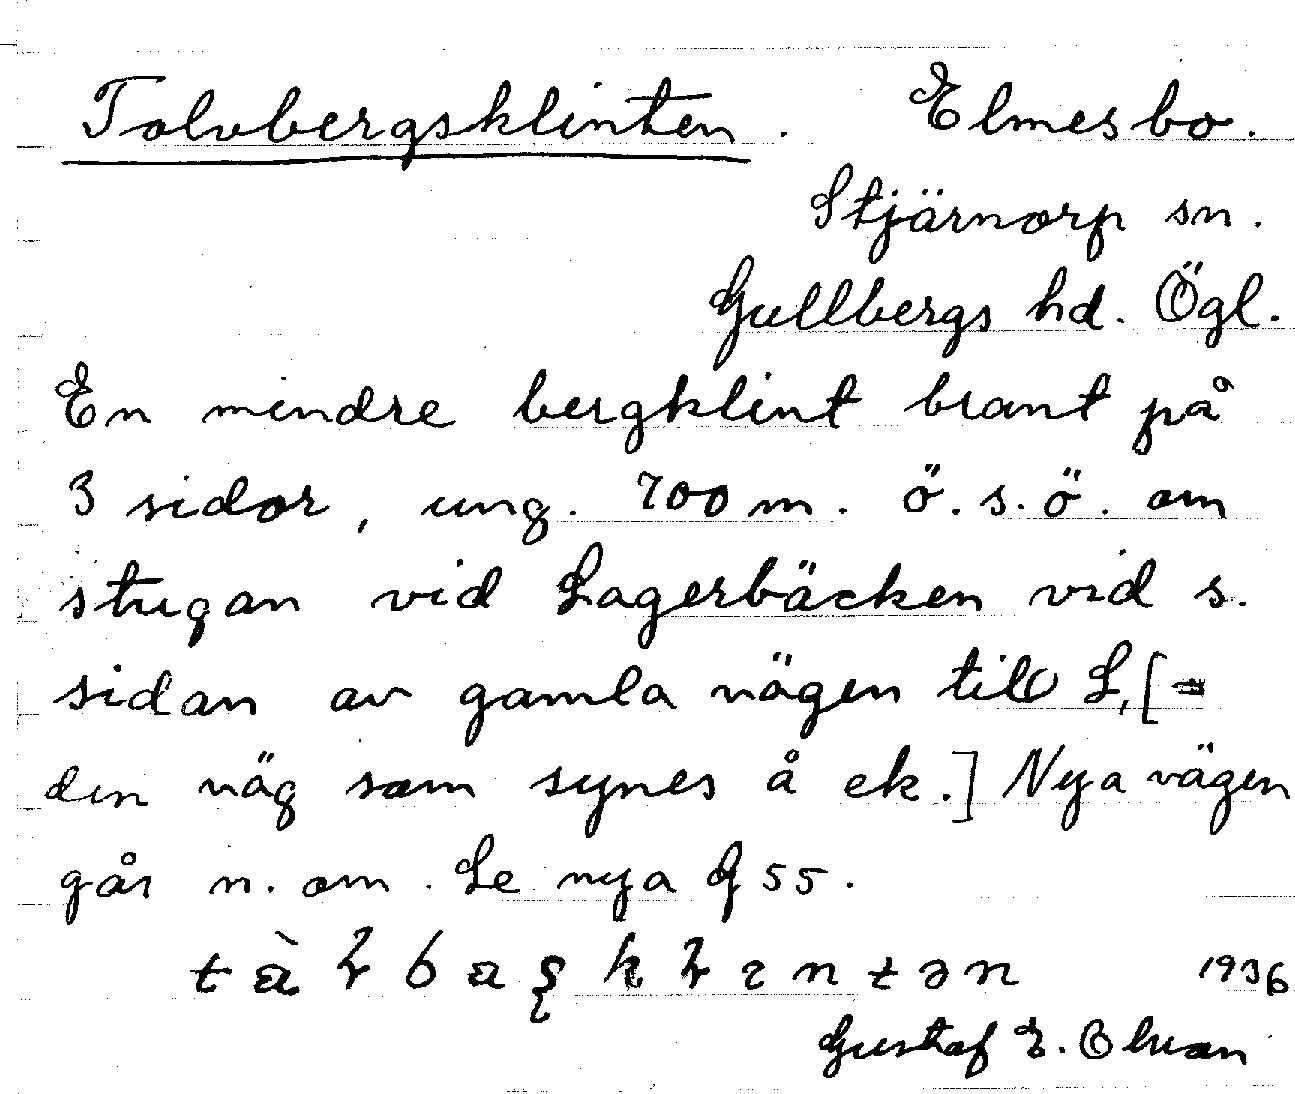 Tolvbergsklinten. Elmesbo.
Stjärnorp sn.
Gullbergs hd. Ögl.
En mindre bergklint brant på
3 sidor, ung. 700 m. ö.s.ö. om
stugan vid Lagerbäcken vid s.
sidan av gamla vägen till L, [=
den väg som synes å ek.] Nya vägen
går n. om. Se nya G 55.
1936
Gustaf E.